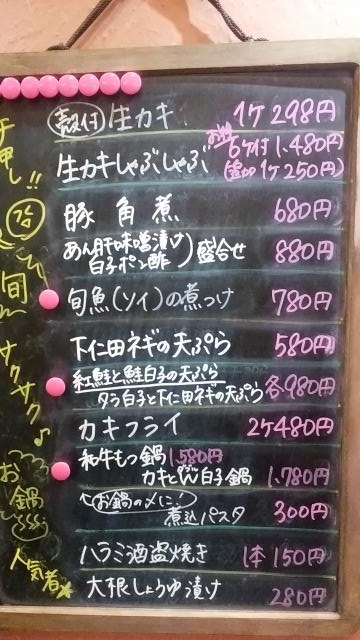 殻付 生カキ 1ケ 298円
生カキしゃぶしゃぶ 6ケ付 1,480円
(追加 1ケ 250円)
豚角煮 680円
あん肝味噌漬け
白子ポン酢 ) 盛合せ 880円
旬魚(ソイ)の煮つけ 780円
下仁田ネギの天ぷら 580円
紅鮭と鮭白子の天ぷら
タラ白子と下仁田ネギの天ぷら 各980円
カキフライ 2ケ480円
和牛もつ鍋 1,580円
カキと 白子鍋 1,780円
お鍋の〆に
煮込パスタ 300円
ハラミ酒盗焼き 1本 150円
大根しょうゆ漬け 280円
押し!!
旬
サクサク♪
お鍋
人気者